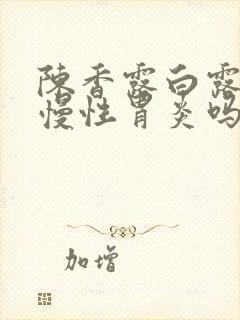 陳香露白露
慢性胃炎吗
加增